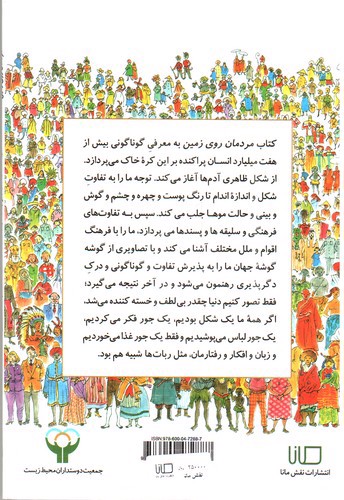 کتاب مردمان روی زمین به معرفی گوناگونی بیش از
هفت میلیارد انسان پراکنده بر این کرهٔ خاک می‌پردازد.
از شکل ظاهری آدم‌ها آغاز می‌کند. توجه ما را به تفاوتِ
شکل و اندازهٔ اندام تا رنگ پوست و چهره و چشم و گوش
و بینی و حالت موها جلب می‌کند. سپس به تفاوت‌های
فرهنگی و سلیقه ها و پسندها می پردازد، ما را با فرهنگ
اقوام و ملل مختلف آشنا می کند و با تصاویری از گوشه
گوشهٔ جهان ما را به پذیرش تفاوت و گوناگونی و درکِ
دگرپذیری رهنمون می‌شود و در آخر نتیجه می‌گیرد:
فقط تصور کنیم دنیا چقدر بی‌لطف و خسته کننده می‌شد.
اگر همهٔ ما یک شکل بودیم، یک جور فکر می‌کردیم،
یک جور لباس می‌پوشیدیم و فقط یک جور غذا می‌خوردیم
و زبان و افکار و رفتارمان، مثل ربات‌ها شبیه هم بود.
ISBN: 978-600-04-7268-7
۲۵۰۰۰۰ ریال
مانا
نقش مانا
مانا
انتشارات نقش مانا
جمعیت دوستداران محیط زیست